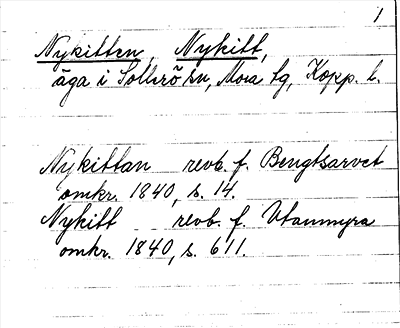 1
Nykitten, Nykitt,
äga i Sollerö sn, Mora tg, Kopp. l.
Nykittan revb. f. Bengtsarvet
omkr. 1840, s. 14.
Nykitt revb. f. Utanmyra
omkr. 1840, s. 611.